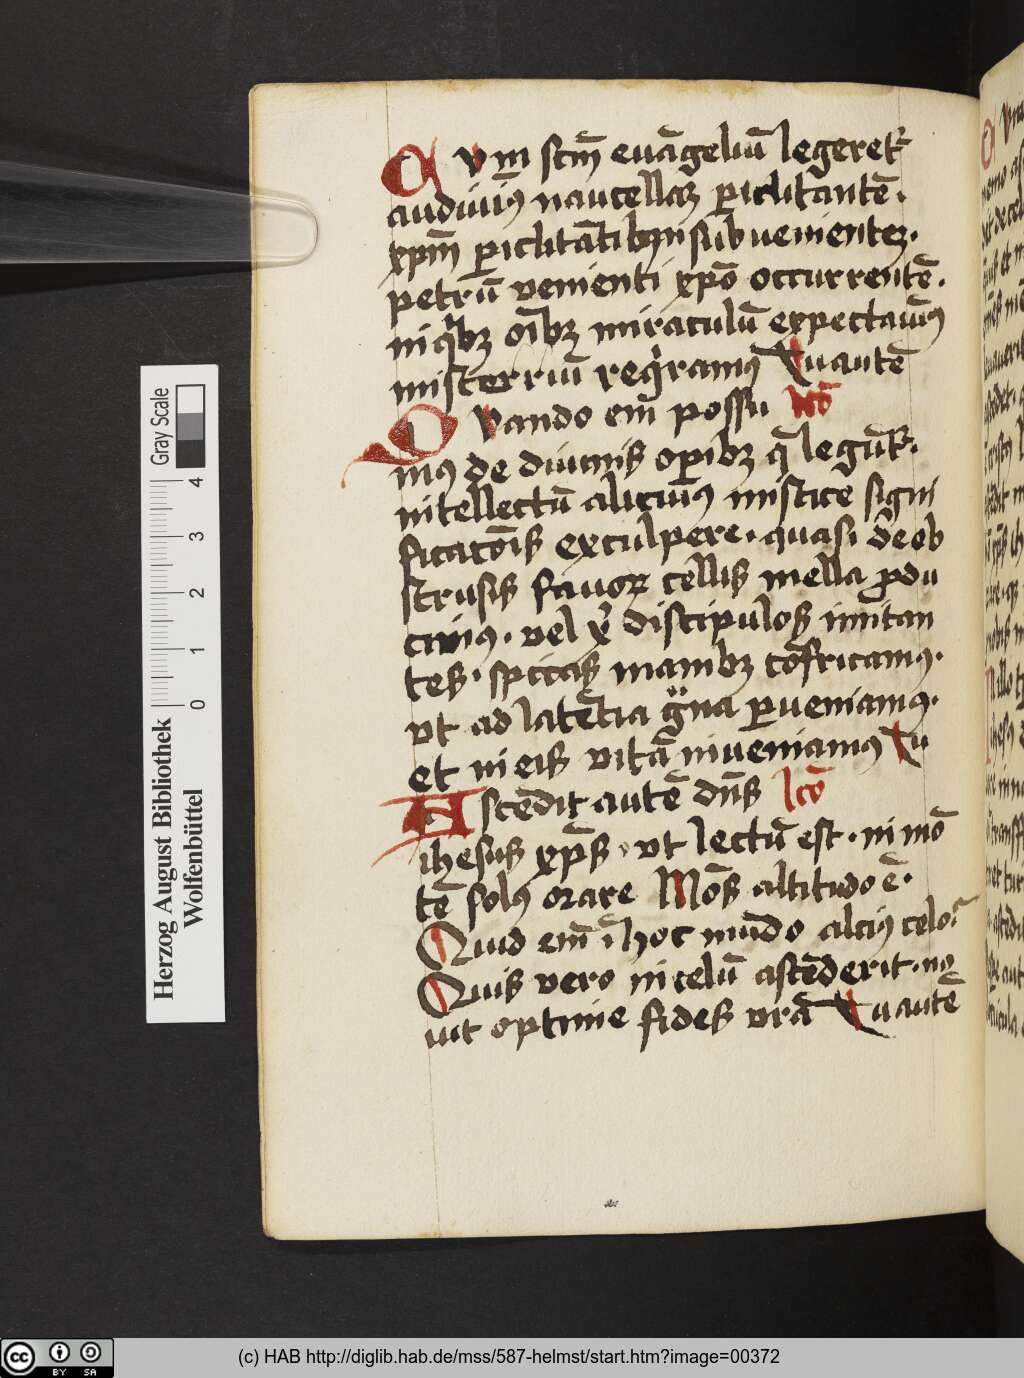 Cum scm̄ euāgeliū legeretᷣ
audiuim⁹ nauicellaꝫ ꝑiclitantē.
xpm̄ ꝑiclitātibꝫ subuenienteꝫ.
petrū venienti xpō occurrentē.
in qͥbꝫ oīb⁊ miraculū expectauim⁹
misterriū reqͥramus Tu autē
Quando em̄ possu lcō
m⁹ de diuinis oꝑibꝫ q̄ legūtᷣ.
intellectū alicui⁹ mistice signi
ficatōis exculpere. quasi de ob
strusis fauoꝝ cellis mella ꝓdu
cim⁹. vel xͥ discipulos imitan
tes. spicas manibꝫ cōfricam⁹.
vt ad latētia gͣna ꝑueniam⁹.
et in eis vitā inueniam⁹ Tu
Ascēdit autē dn̄s lcō
ihesus xp̄s. vt lectū est. in mō
tē solus orare Mōs altitudo ē.
Quid em̄ ī hoc mūdo alci⁹ celoꝝ
Quis vero in celū ascēderit. no
uit optime fides vrā Tu autē
Herzog August Bibliothek
Wolfenbüttel
Gray Scale
0 1 2 3 4
(c) HAB http://diglib.hab.de/mss/587-helmst/start.htm?image=00372
cc BY SA